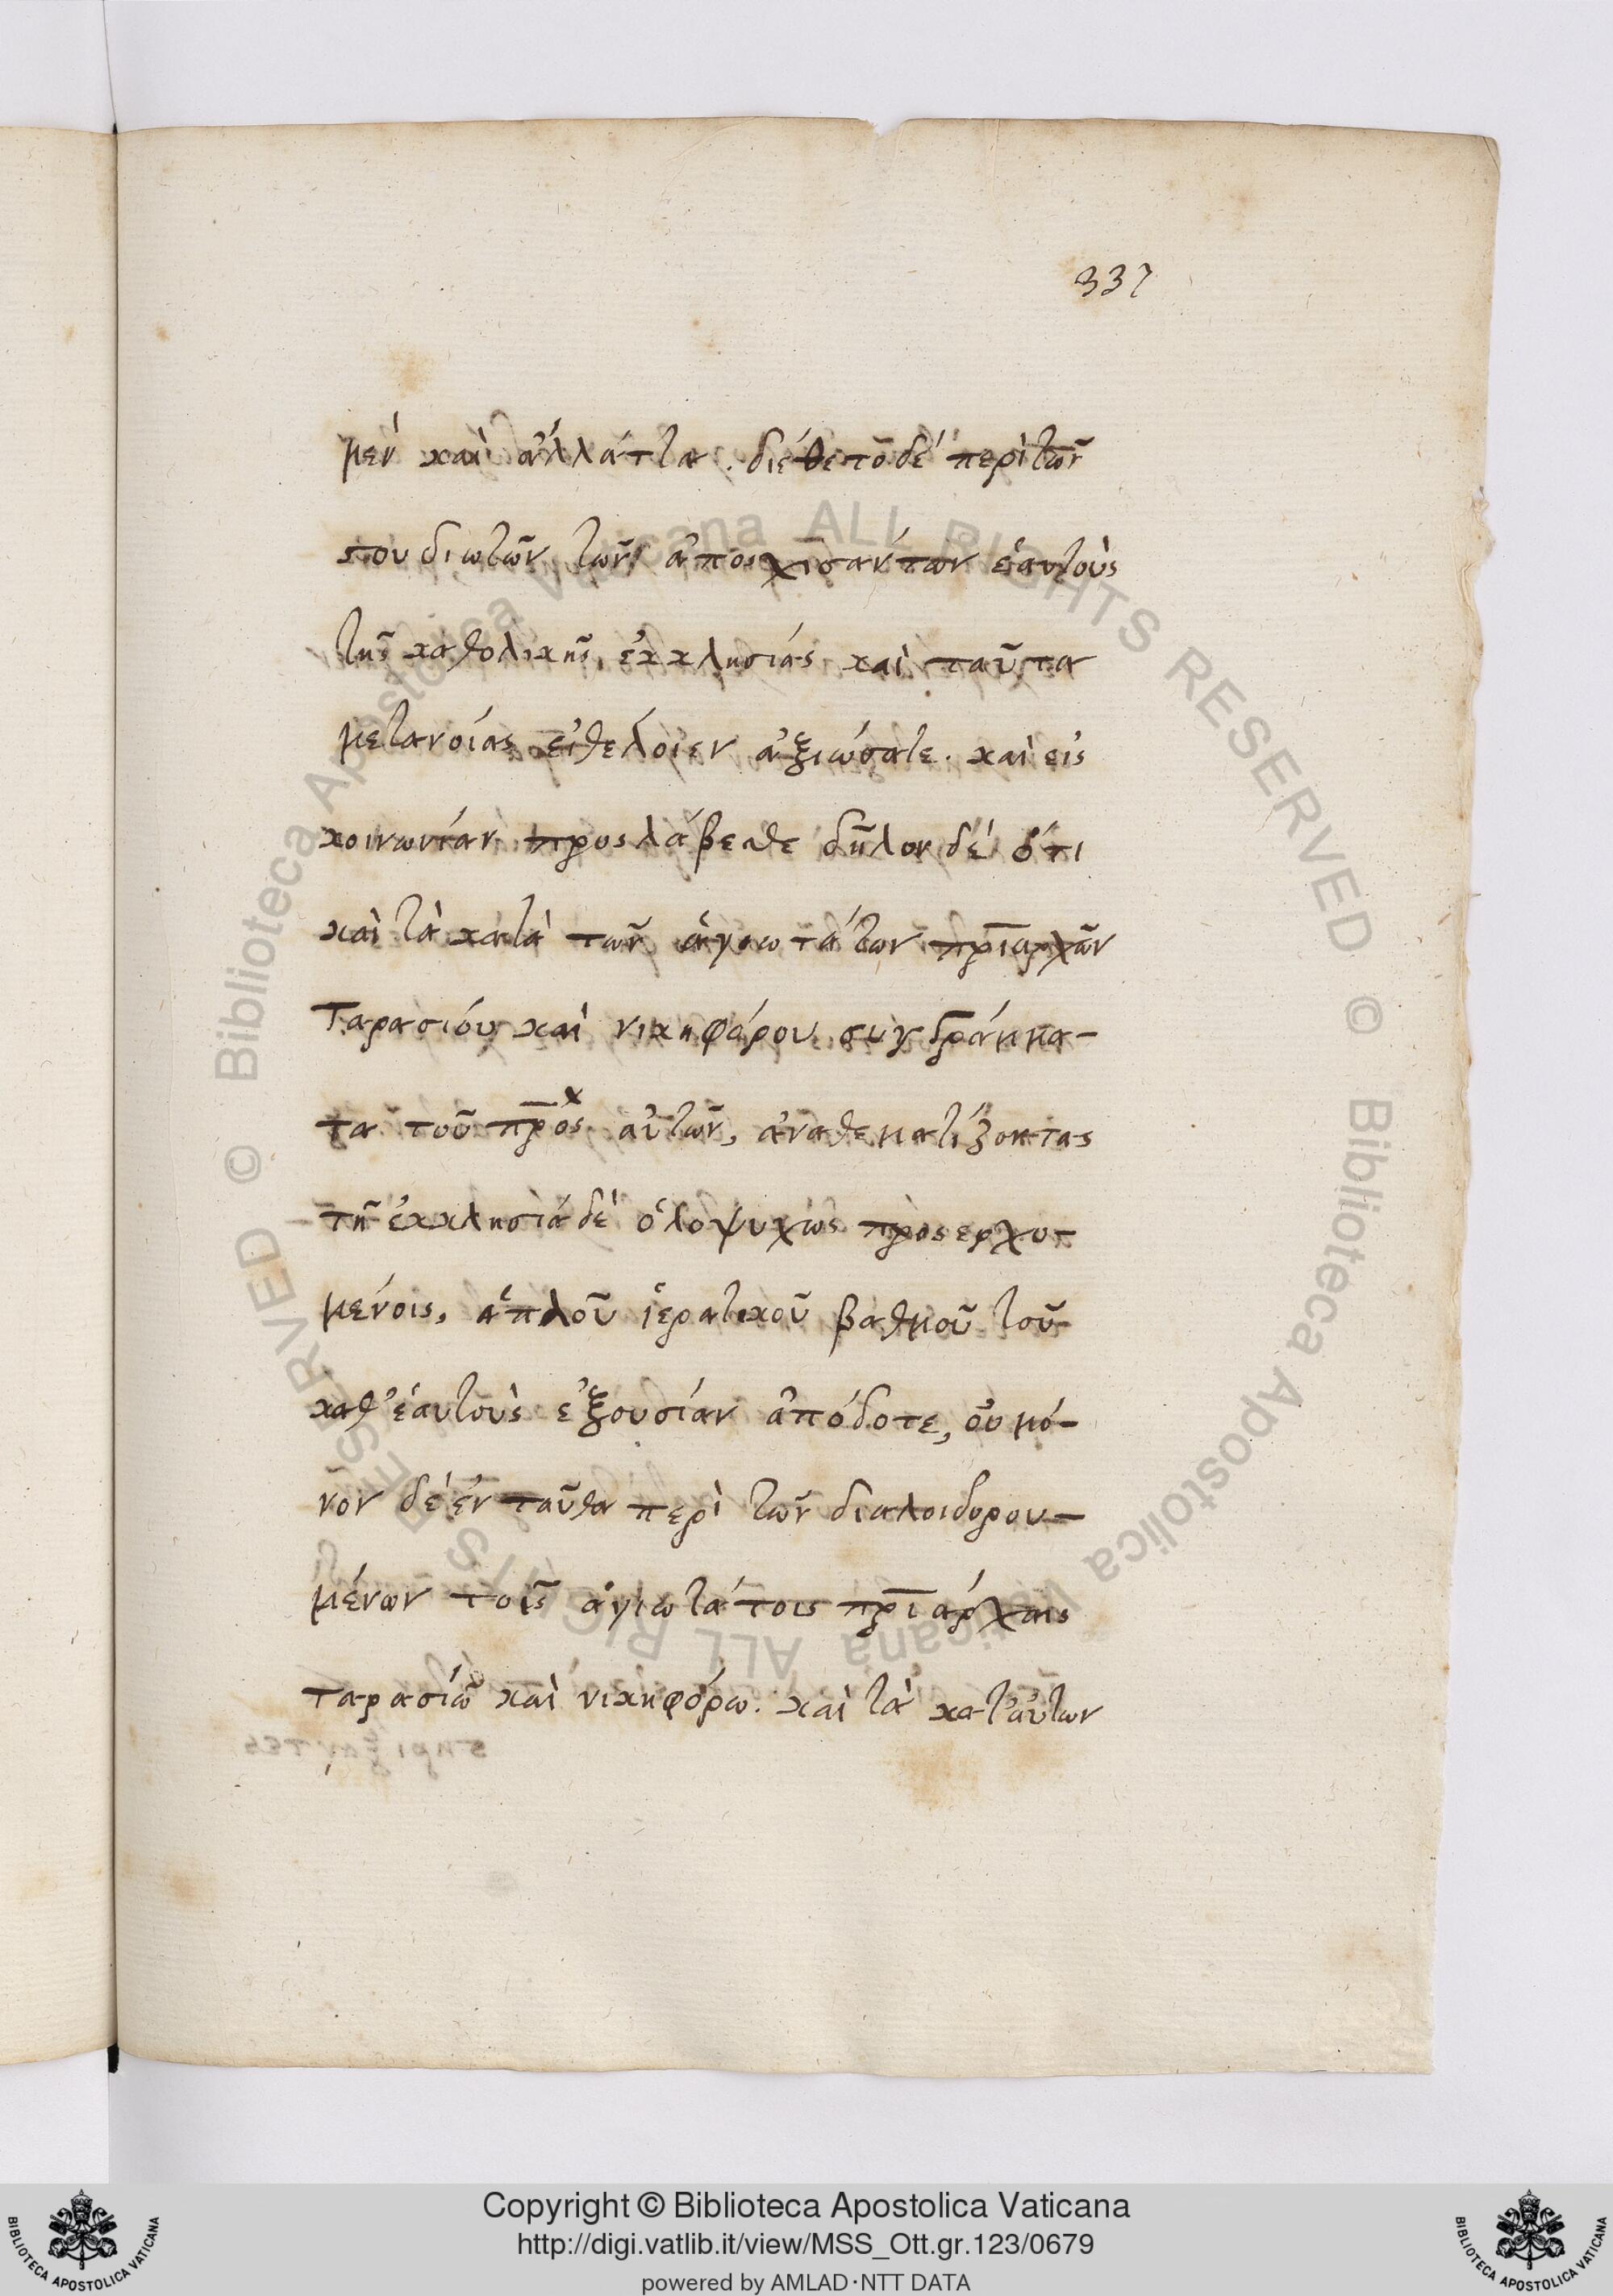 337
μεν καὶ ἀλλάττα. διέθετο δὲ περὶ τῶν
στουδιωτῶν τῶν ἀποσχισάντων ἑαυτοὺς
τῆς καθολικῆς ἐκκλησίας καὶ ταῦτα
μετανοίας εἰθελόιεν ἀξιώσατε. καὶ εἰς
κοινωνίαν προσλάβεσθε δῆλον δὲ ὅτι
καὶ τὰ κατὰ τῶν ἁγιωτάτων πρ̅ιαρχῶν
Ταρασιόυ καὶ νικηφόρου συγγράμμα-
τα τοῦ αὐτῶν, ἀναθεματίζοντας
τῆ ἐκκλησία δὲ ὁλοψυχῶς προσερχο-
μένοις, ἁπλοῦ ἱερατικοῦ βαθμοῦ τοῦ
καθ' ἑαυτοὺς ἐξουσίαν ἀπόδοτε, οὐ μό-
νον δὲ ἐν ταῦθα περὶ τῶν διαλοιδορου-
μένων τοῖς ἁγιωτάτοις πρ̅ιάρχαις
ταρασίω καὶ νικηφόρω. καὶ τὰ κατ' αὐτων
Copyright © Biblioteca Apostolica Vaticana
http://digi.vatlib.it/view/MSS_Ott.gr.123/0679
powered by AMLAD·NTT DATA
BIBLIOTECA APOSTOLICA VATICANA
BIBLIOTECA APOSTOLICA VATICANA
© Biblioteca Apostolica Vaticana ALL RIGHTS RESERVED © Biblioteca Apostolica Vaticana ALL RIGHTS RESERVED